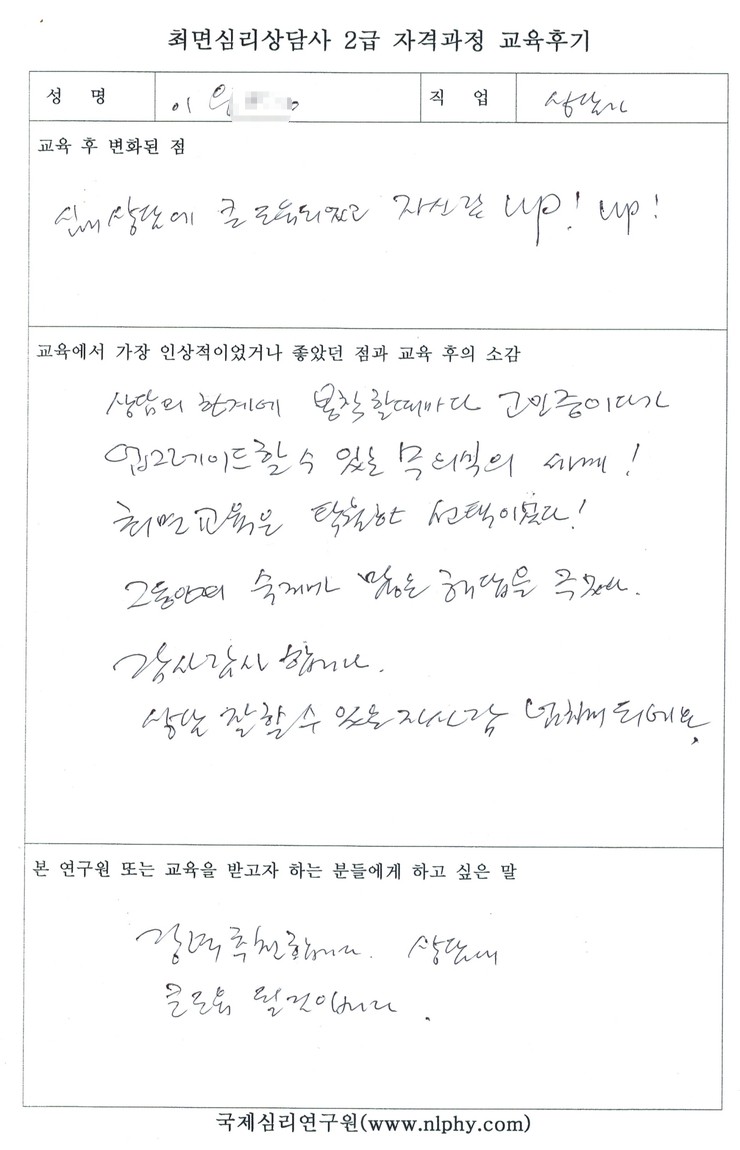 최면심리상담사 2급 자격과정 교육후기
성 명 이 직 업 상담사
교육 후 변화된 점
상담에 큰 도움되었고 자신감 up! up!
교육에서 가장 인상적이었거나 좋았던 점과 교육 후의 소감
상담의 한계에 봉착할때마다 고민중이다가
업그레이드할 수 있는 무의식의 세계!
최면교육은 탁월한 선택이었다!
그동안의 숙제가 많은 해답을 주었다.
감사감사 합니다.
상담 잘할 수 있는 자신감 넘치게 되네요.
본 연구원 또는 교육을 받고자 하는 분들에게 하고 싶은 말
강력추천합니다. 상담에
큰도움 될것입니다.
국제심리연구원(www.nlphy.com)